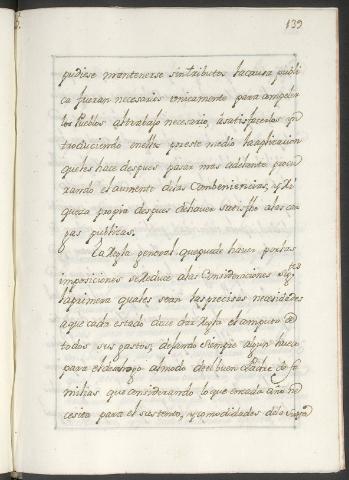 139
pudiese mantenerse sin tributos la causa publi
ca fueran necesarios unicamente para ampeler
los Pueblos al trabajo necesario, a satisfacerlos yn
troduciendo en ellos por este medio la aplicacion
que les hace despues pasar mas adelante procu
rando el aumento de las Conbeniencias, y Ri
queza propia despues de haver satisfho a las car
gas publicas.
La Regla general que puede haver para las
imposiciones se Reduce a las Consideraciones sigtes
la primera quales sean las precisas necesidades
a que cada estado deve dar Regla el amparo de
todos sus gastos, dejando siempre algun hueco
para el desahogo al modo de el buen Padre de fa
milias que considerando lo que en cada año ne
cesita para el sustento, y comodidades de la